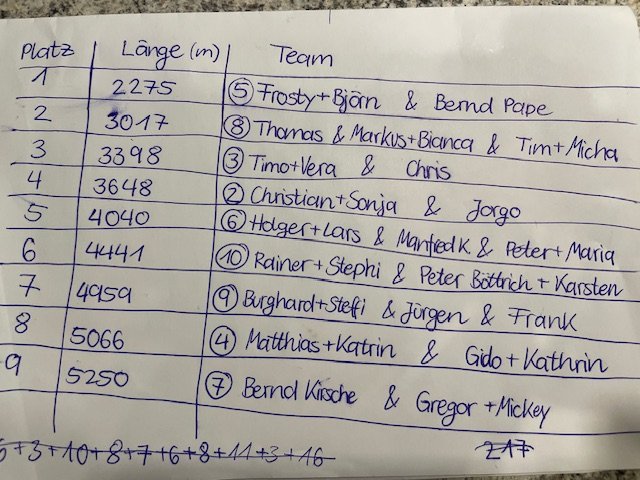 Platz Länge (m) Team
1 2275 ⑤ Frosty+Björn & Bernd Pape
2 3017 ⑧ Thomas & Markus+Bianca & Tim+Micha
3 3398 ③ Timo+Vera & Chris
4 3648 ② Christian+Sonja & Jorgo
5 4040 ⑥ Holger+Lars & Manfred K. & Peter+Maria
6 4441 ⑩ Rainer+Stephi & Peter Böttrich+Karsten
7 4959 ⑨ Burghard+Steffi & Jürgen & Frank
8 5066 ④ Matthias+Katrin & Gido+Kathrin
9 5250 ⑦ Bernd Kirsche & Gregor+Mickey
+3+10+8+7+6+8+11+3+16 217